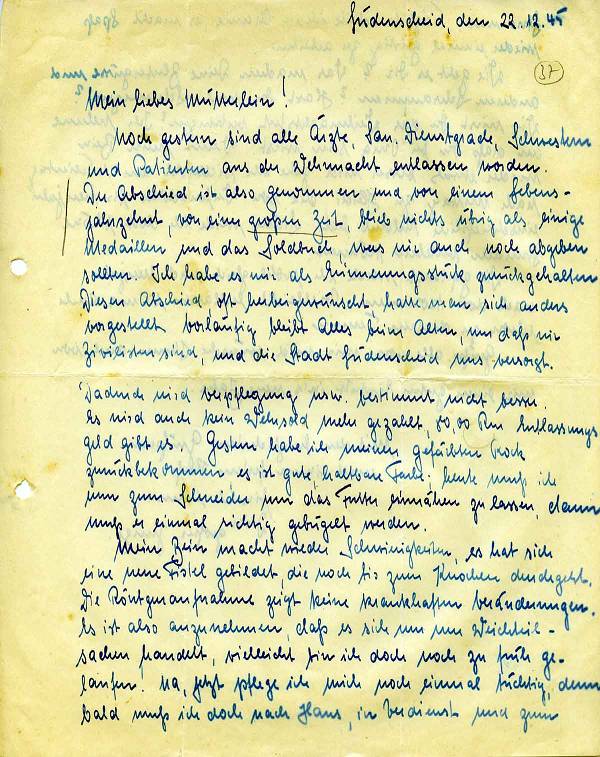 Lüdenscheid, den 22.12.45
37
Mein liebes Mütterlein!
Noch gestern sind alle Ärzte, San. Dienstgrade, Schwestern
und Patienten aus der Wehrmacht entlassen worden.
Der Abschied ist also genommen und von einem Lebens-
jahrzehnt, von einer großen Zeit, blieb nichts übrig als einige
Medaillen und das Soldbuch, was wir auch noch abgeben
sollten. Ich habe es mir als Erinnerungsstück zurückgehalten
Diesen Abschied, oft herbeigewünscht, hatte man sich anders
vorgestellt. Vorläufig bleibt Alles beim Alten, nur daß wir
Zivilisten sind, und die Stadt Lüdenscheid uns versorgt.
Dadurch wird Verpflegung usw. bestimmt nicht besser.
Es wird auch kein Wehrsold mehr gezahlt, Rm Entlassungs
geld gibt es. Gestern habe ich meinen gefärbten Rock
zurückbekommen es ist gute, haltbare Farbe. heute muß ich
nun zum Schneider um das Futter einnähen zu lassen, dann
muß er einmal richtig gebügelt werden.
Mein Bein macht wieder Schwierigkeiten, es hat sich
eine neue Fistel gebildet, die noch bis zum Knochen durchgeht.
Die Röntgenaufnahme zeigt keine krankhaften Veränderungen.
Es ist also anzunehmen, daß es sich nur um Weichteil-
sachen handelt, vielleicht bin ich doch noch zu früh ge-
laufen. Na, jetzt pflege ich mich noch einmal tüchtig, denn
bald muß ich doch nach Haus, in Verdienst und zum